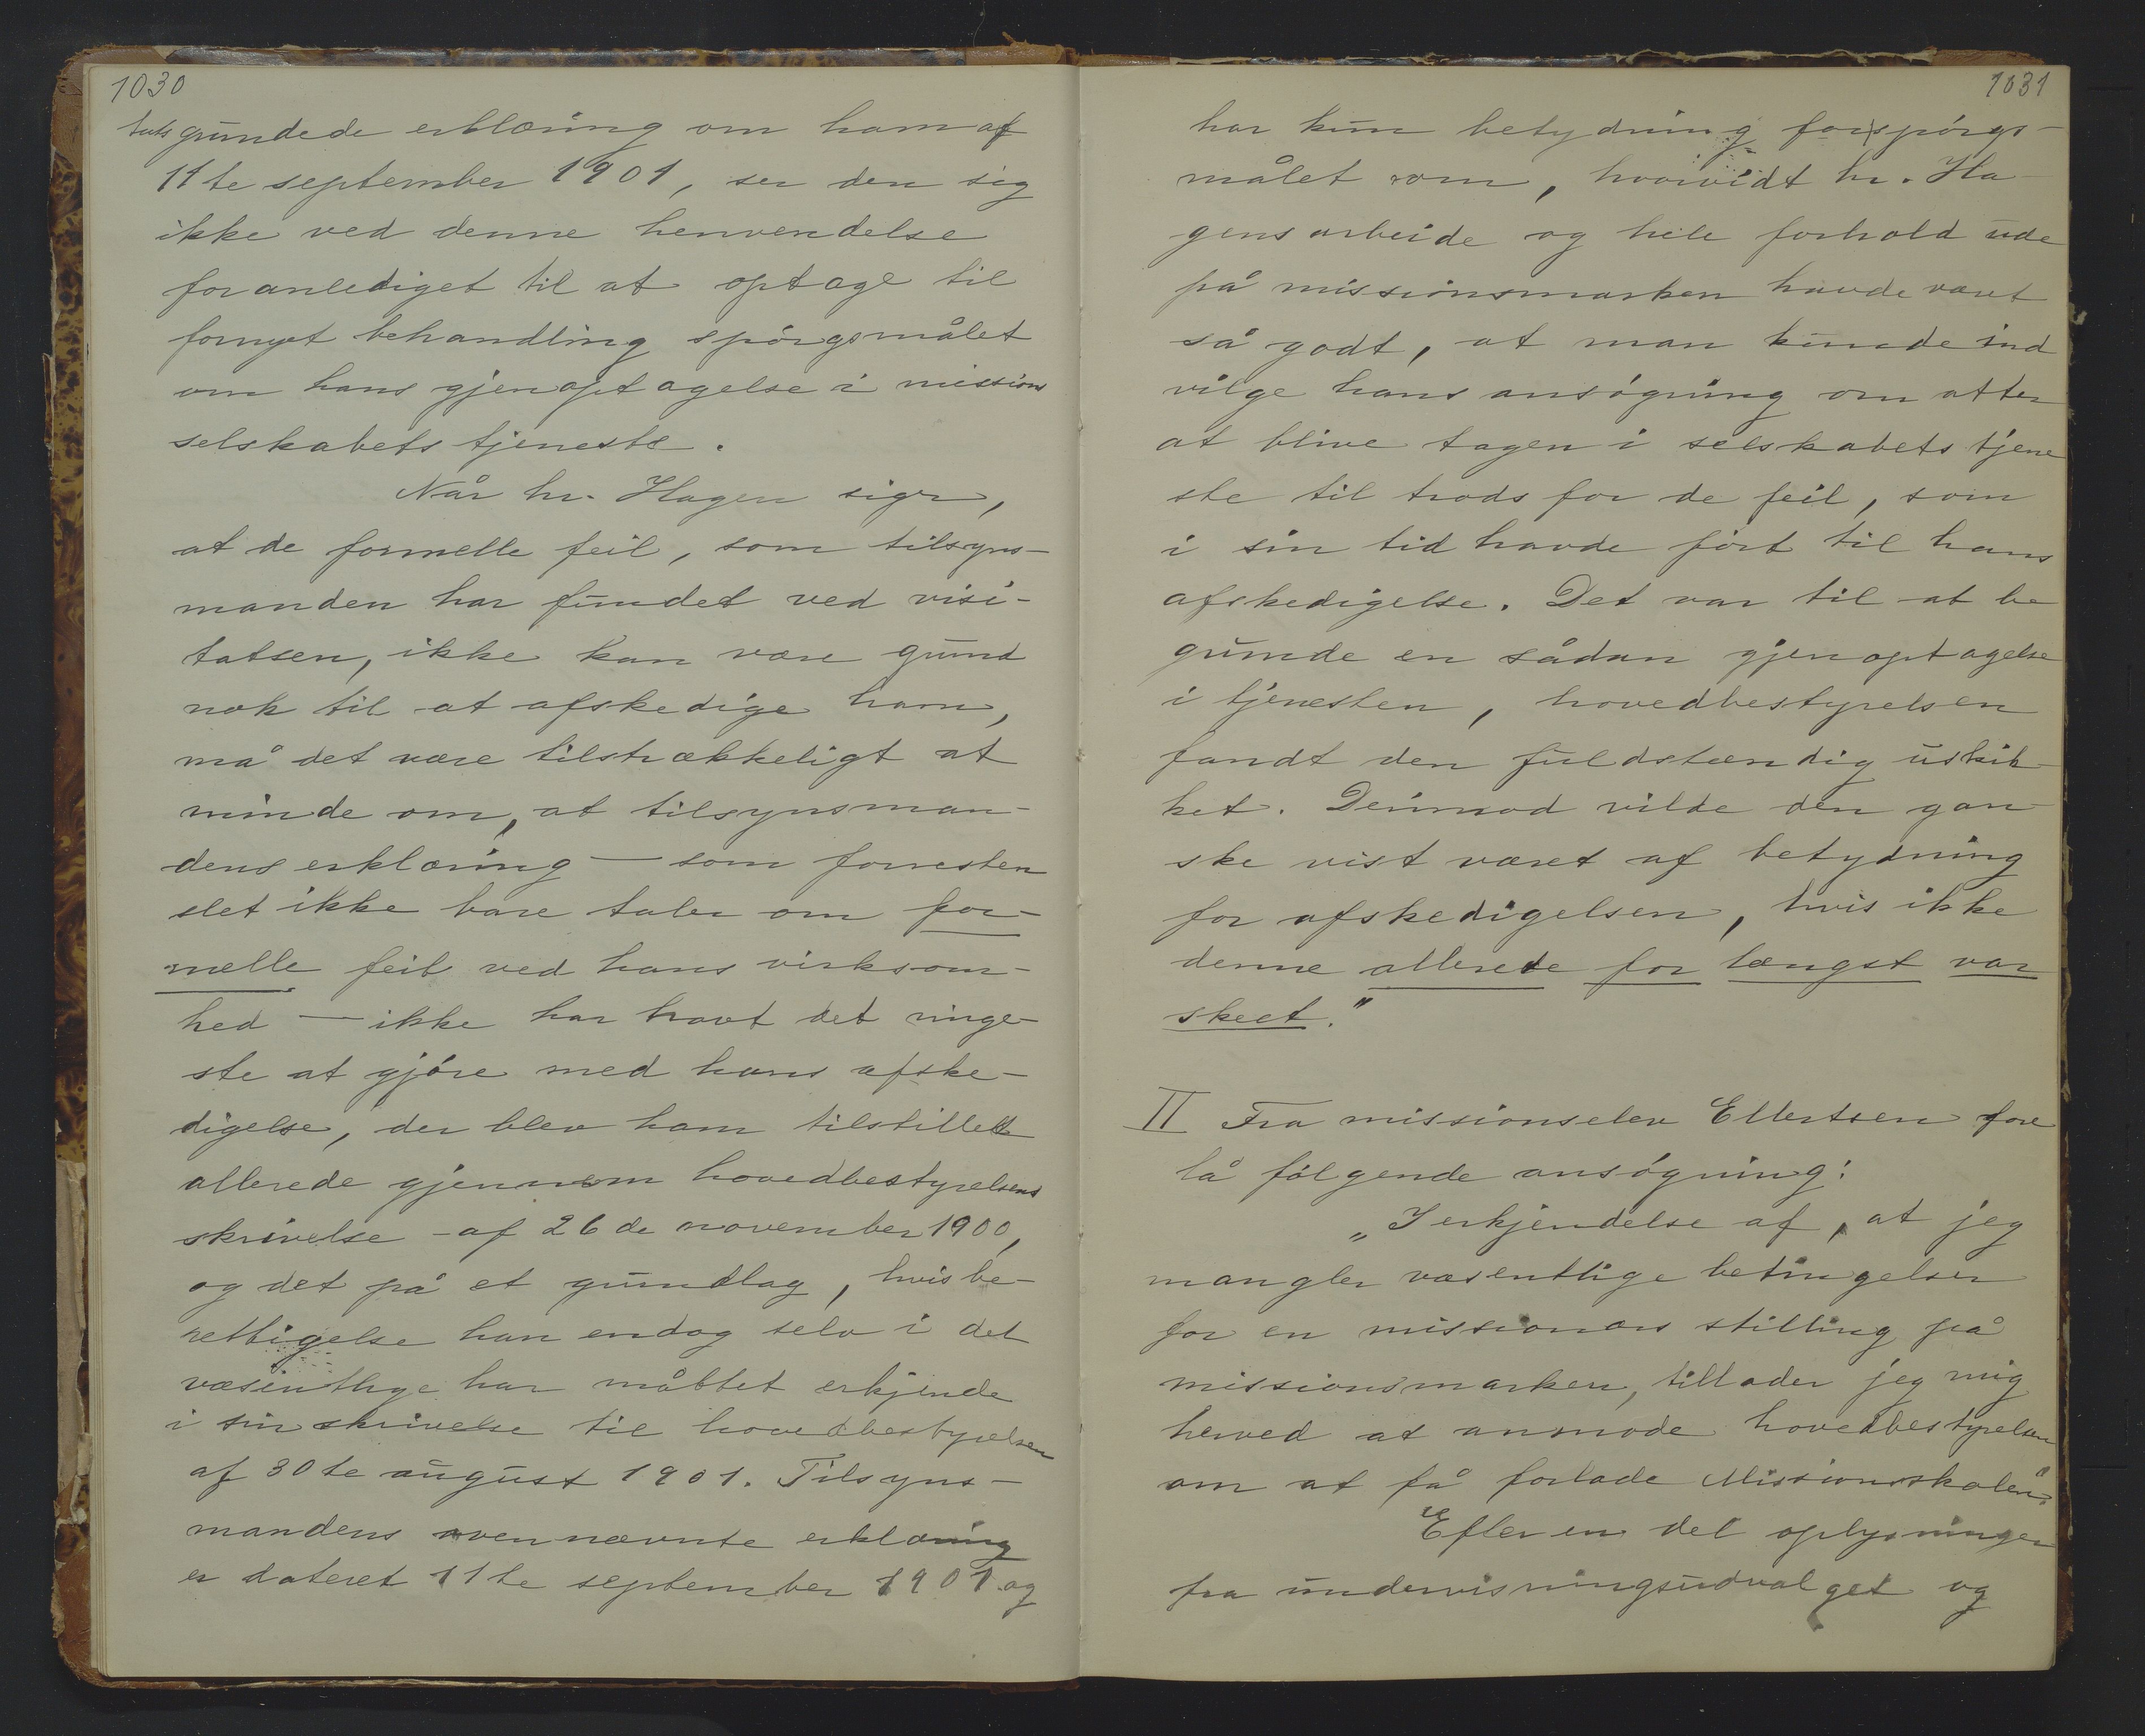 1030
grundede erklæring om ham af
11te september 1901, ser den sig
ikke ved denne henvendelse
foranlediget til at optage til
fornyet behandling spørgsmålet
om hans gjenoptagelse i missions
selskabets tjeneste.
Når hr. Hagen siger,
at de formelle feil, som tilsyns-
manden har fundet ved visi-
tatsen, ikke kan være grund
nok til at afskedige ham,
må det være tilstrækkeligt at
minde om, at tilsynsman-
dens erklæring – som forresten
slet ikke bare taler om for-
melle feil ved hans virksom-
hed – ikke har havt det ringe-
ste at gjøre med hans afske-
digelse, der blev ham tilstillet
allerede gjennem hovedbestyrelsens
skrivelse af 26de november 1900,
og det på et grundlag, hvis be-
rettigelse han endog selv i det
væsentlige har måttet erkjende
i sin skrivelse til hovedbestyrelsen
af 30te august 1901. Tilsyns-
mandens ovennævnte erklæring
er dateret 11te september 1901 og
1031
har kun betydning for spørgs-
målet om, hvorvidt hr. Ha-
gens arbeide og hele forhold ude
på missionsmarken havde været
så godt, at man kunde ind
vilge hans ansøgning om atter
at blive tagen i selskabets tjene
ste til trods for de feil, som
i sin tid havde ført til hans
afskedigelse. Det var til at be
grunde en sådan gjenoptagelse
i tjenesten, hovedbestyrelsen
fandt den fuldstændig uskik-
ket. Derimod vilde den gan-
ske vist været af betydning
for afskedigelsen, hvis ikke
denne allerede for længst var
skeet."
II Fra missionselev Ellertsen fore
lå følgende ansøgning:
„I erkjendelse af, at jeg
mangler væsentlige betingelser
for en missionærs stilling på
missionsmarken, tillader jeg mig
herved at anmode hovedbestyrelsen
om at få forlade Missionsskolen."
Efter en del oplysninger
fra undervisningsudvalget og